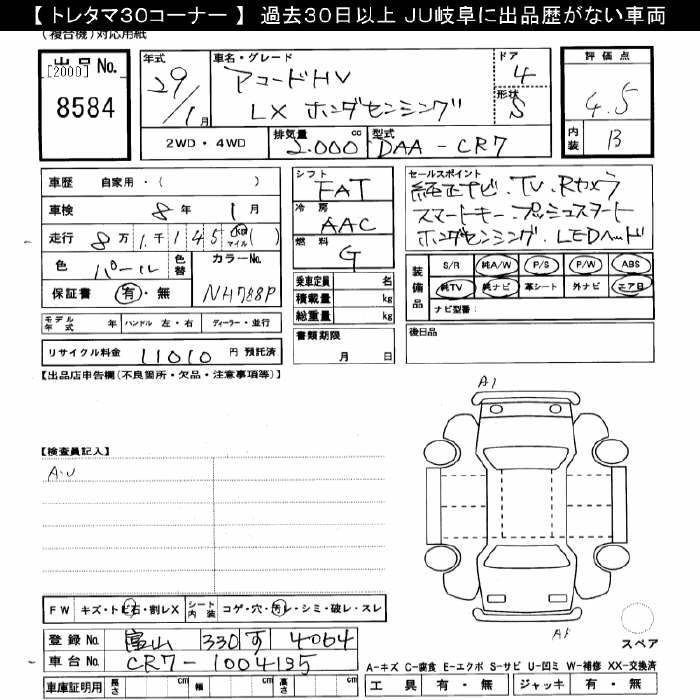 【 トレタマ30コーナー 】 過去30日以上 JU岐阜に出品歴がない車両
(複合機)対応用紙
出品No.
[2000]
8584
年式
29/1月
車名・グレード
アコードHV
LX ホンダセンシング
ドア
4
形状
S
評価点
4.5
内装
B
2WD・4WD
排気量
2.000cc
型式
DAA-CR7
車歴 自家用・( )
車検 8年 1月
走行 8万1千145 km マイル ( )
色 パール
色替
カラーNo.
NH788P
保証書 有・無
シフト
FAT
冷房
AAC
燃料
G
乗車定員 名
積載量 kg
総重量 kg
書類期限
月 日
セールスポイント
純正ナビ.TV.Rカメラ
スマートキー.プッシュスタート
ホンダセンシング.LEDヘッド
装備品
S/R 純A/W P/S P/W ABS
純TV 純ナビ 革シート 外ナビ エアB
ナビ型番:
後日品
モデル年式 年 ハンドル 左・右 ディーラー・並行
リサイクル料金 11010 円 預託済
【出品店申告欄(不良箇所・欠品・注意事項等)】
【検査員記入】
A.U
A1
A1
スペア
FW キズ・トビ石・割レX
シート内装 コゲ・穴・汚レ・シミ・破レ・スレ
登録No. 富山 330 す 4064
車台No. CR7-1004195
車庫証明用 長さ cm 幅 cm 高さ cm
A-キズ C-腐食 E-エクボ S-サビ U-凹ミ W-補修 XX-交換済
工具 有・無 ジャッキ 有・無